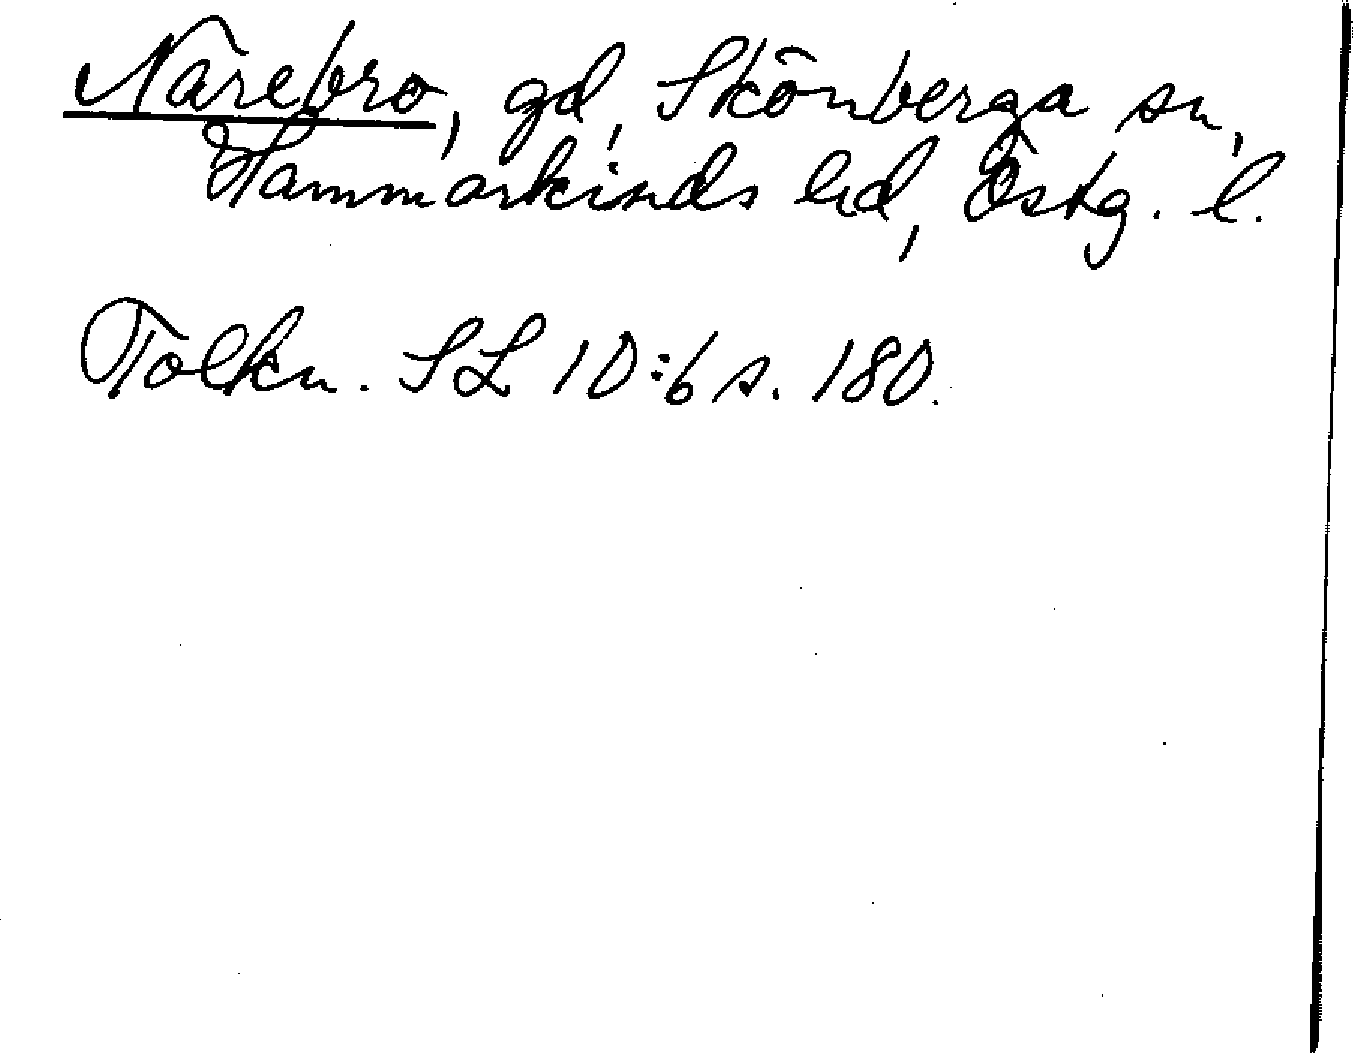 Närebro, gd, Skönberga sn,
Hammarkinds hd, Östg. l.
Tolkn. SL 10:6 s. 180.